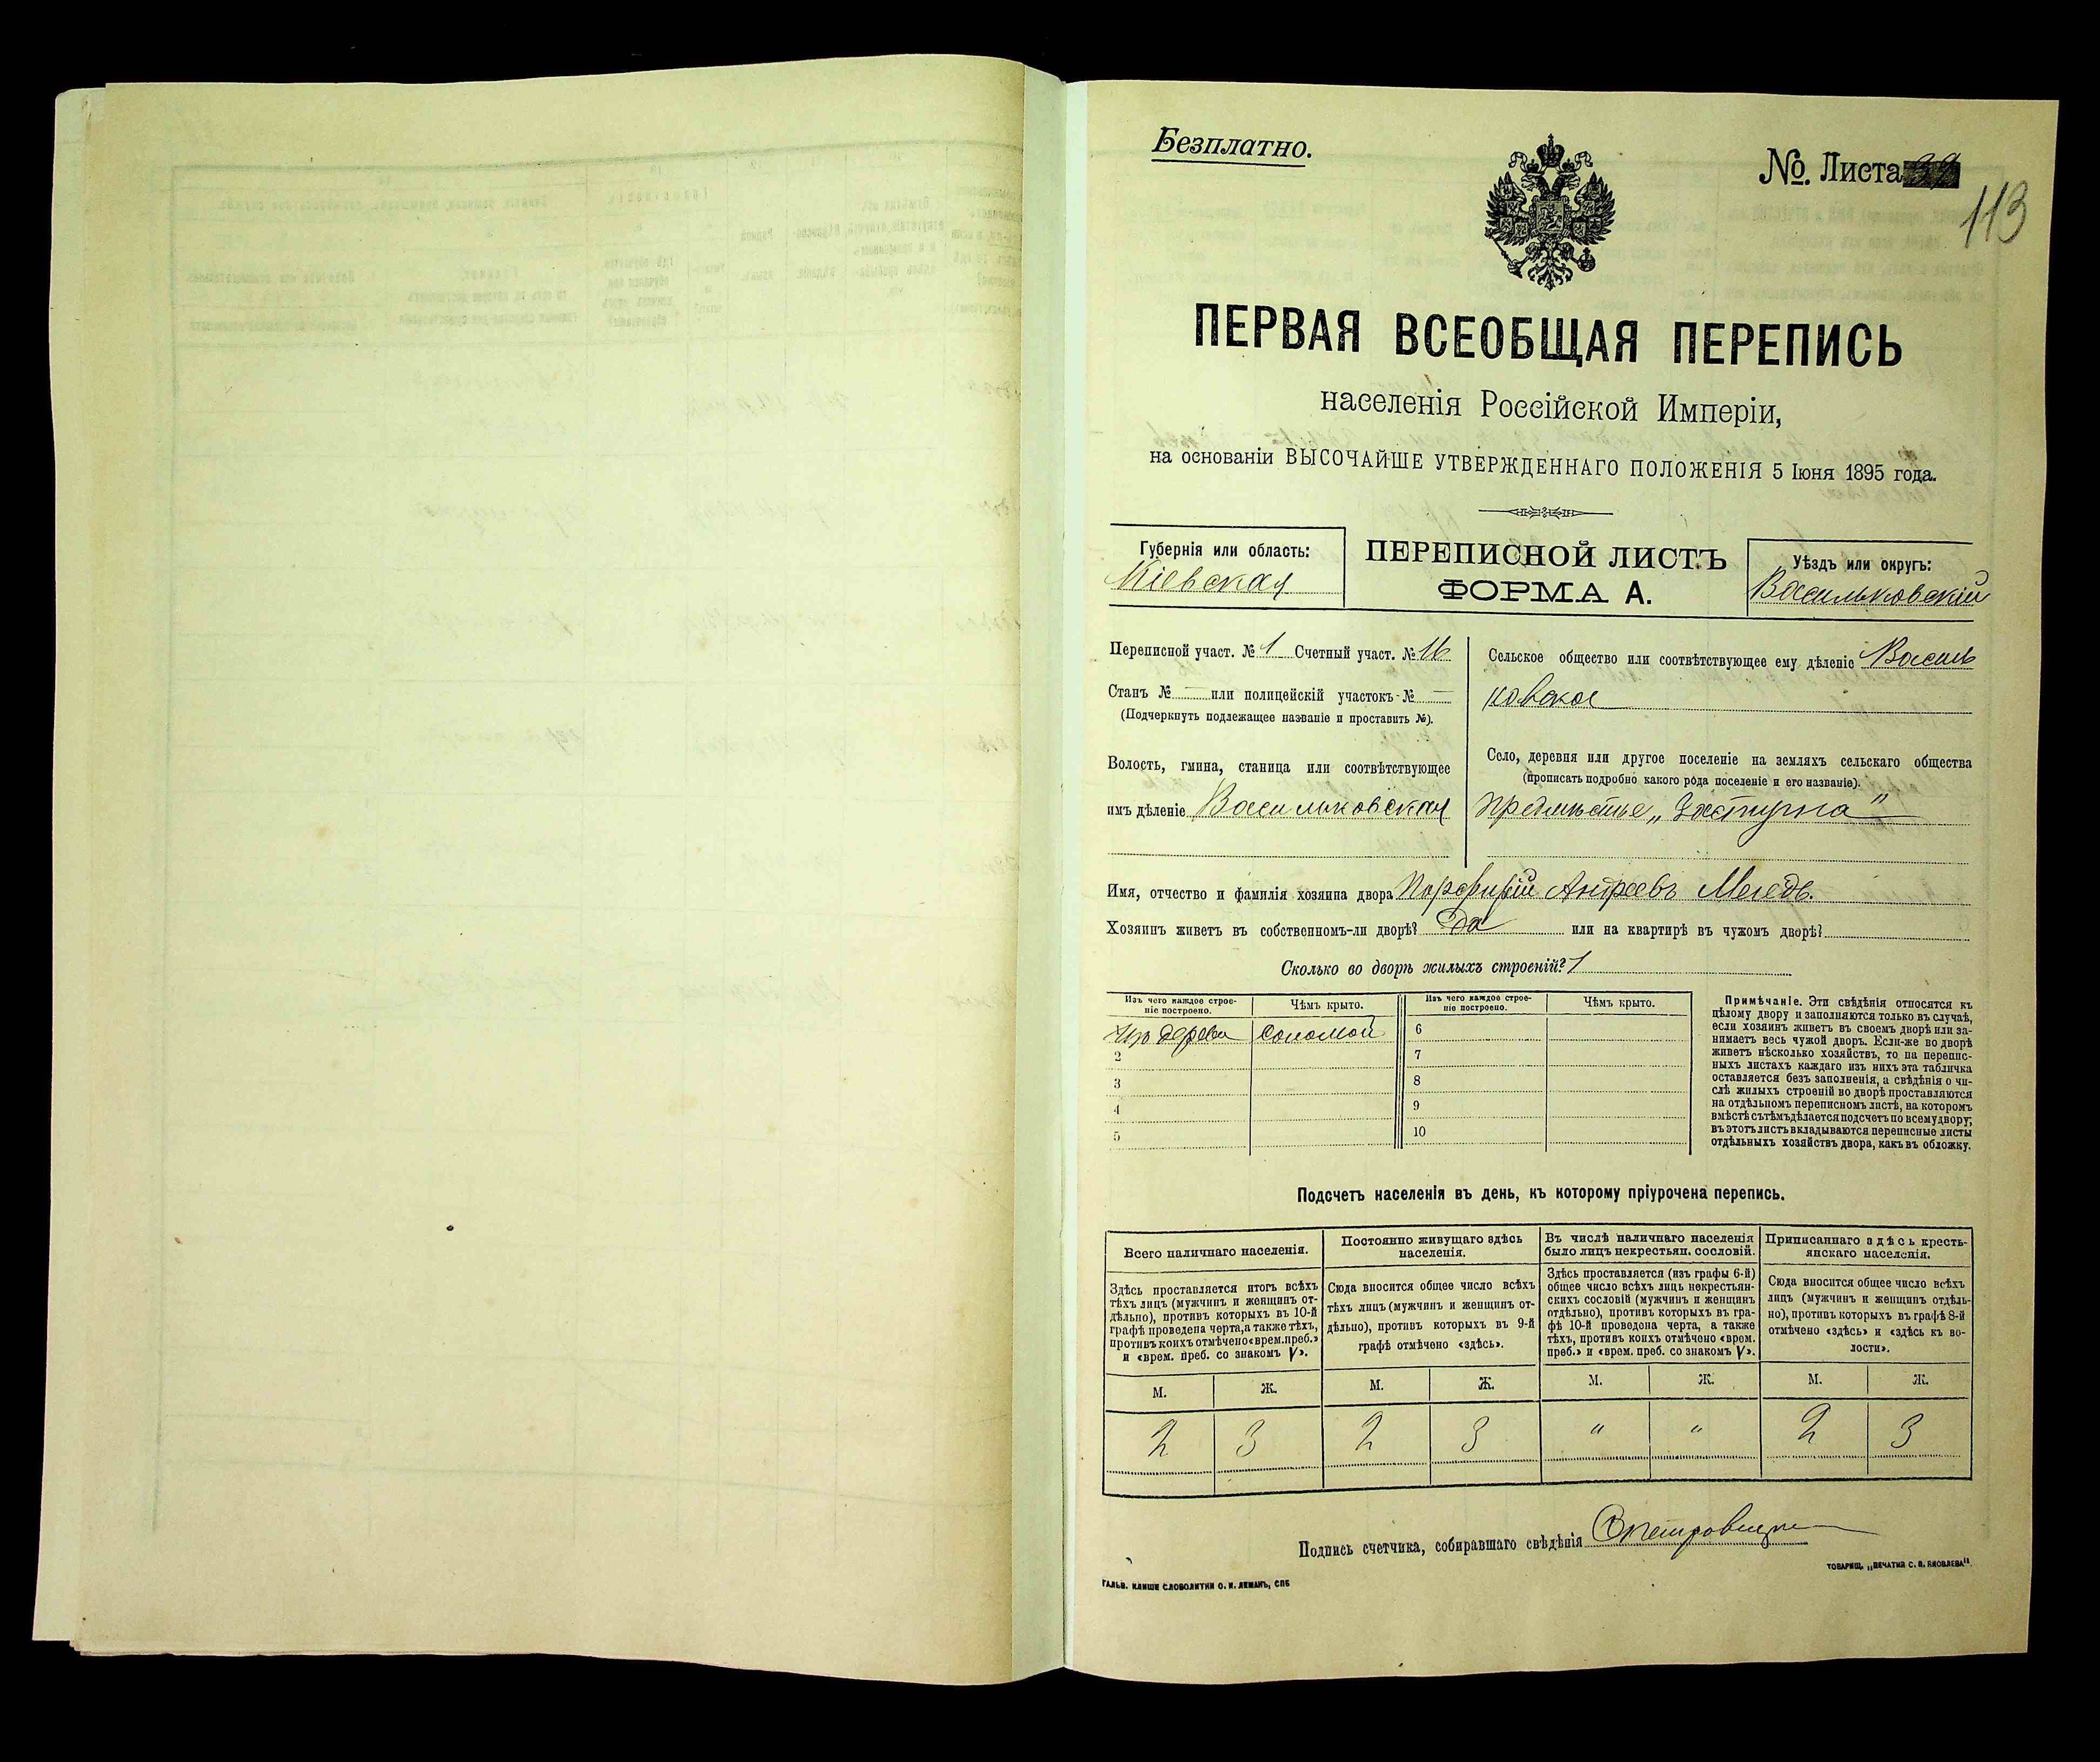 Безплатно.
№. Листа 39
113
ПЕРВАЯ ВСЕОБЩАЯ ПЕРЕПИСЬ
населенія Россійской Имперіи,
на основаніи ВЫСОЧАЙШЕ УТВЕРЖДЕННАГО ПОЛОЖЕНІЯ 5 Іюня 1895 года.
Губернія или область:
Кіевская
ПЕРЕПИСНОЙ ЛИСТЪ
ФОРМА А.
Уѣздъ или округъ:
Васильковскій
Переписной участ. № 1 Счетный участ. № 16
Станъ № — или полицейскій участокъ № —
(Подчеркнуть подлежащее названіе и проставить №).
Волость, гмина, станица или соотвѣтствующее
имъ дѣленіе Васильковская
Сельское общество или соотвѣтствующее ему дѣленіе Василь
ковское
Село, деревня или другое поселеніе на земляхъ сельскаго общества
(прописать подробно какого рода поселеніе и его названіе).
предмѣстье „Застугна"
Имя, отчество и фамилія хозяина двора Порфирій Андреевъ
Хозяинъ живетъ въ собственномъ-ли дворѣ? Да или на квартирѣ въ чужомъ дворѣ?
Сколько во дворѣ жилыхъ строеній? 1
Изъ чего каждое строе-
ніе построено.
Чѣмъ крыто.
Изъ чего каждое строе-
ніе построено.
Чѣмъ крыто.
Изъ дерева Соломой 6
2 7
3 8
4 9
5 10
Примѣчаніе. Эти свѣдѣнія относятся къ
цѣлому двору и заполняются только въ случаѣ,
если хозяинъ живетъ въ своемъ дворѣ или за-
нимаетъ весь чужой дворъ. Если-же во дворѣ
живетъ нѣсколько хозяйствъ, то на перепис-
ныхъ листахъ каждаго изъ нихъ эта табличка
оставляется безъ заполненія, а свѣдѣнія о чи-
слѣ жилыхъ строеній во дворѣ проставляются
на отдѣльномъ переписномъ листѣ, на которомъ
вмѣстѣ съ тѣмъ дѣлается подсчетъ по всему двору;
въ этотъ листъ вкладываются переписные листы
отдѣльныхъ хозяйствъ двора, какъ въ обложку.
Подсчетъ населенія въ день, къ которому пріурочена перепись.
Всего наличнаго населенія.
Здѣсь проставляется итогъ всѣхъ
тѣхъ лицъ (мужчинъ и женщинъ от-
дѣльно), противъ которыхъ въ 10-й
графѣ проведена черта, а также тѣхъ,
противъ коихъ отмѣчено «врем. преб.»
и «врем. преб. со знакомъ V».
Постоянно живущаго здѣсь
населенія.
Сюда вносится общее число всѣхъ
тѣхъ лицъ (мужчинъ и женщинъ от-
дѣльно), противъ которыхъ въ 9-й
графѣ отмѣчено «здѣсь».
Въ числѣ наличнаго населенія
было лицъ некрестьян. сословій.
Здѣсь проставляется (изъ графы 6-й)
общее число всѣхъ лицъ некрестьян-
скихъ сословій (мужчинъ и женщинъ
отдѣльно), противъ которыхъ въ гра-
фѣ 10-й проведена черта, а также
тѣхъ, противъ коихъ отмѣчено «врем.
преб.» и «врем. преб. со знакомъ V».
Приписаннаго здѣсь кресть-
янскаго населенія.
Сюда вносится общее число всѣхъ
лицъ (мужчинъ и женщинъ отдѣль-
но), противъ которыхъ въ графѣ 8-й
отмѣчено «здѣсь» и «здѣсь къ во-
лости».
М. Ж. М. Ж. М. Ж. М. Ж.
2 3 2 3 " " 2 3
Подпись счетчика, собиравшаго свѣдѣнія
ГАЛЬВ. КЛИШЕ СЛОВОЛИТНИ О. И. ЛЕМАНЪ, СПБ
ТОВАРИЩ. „ПЕЧАТНЯ С. П. ЯКОВЛЕВА".